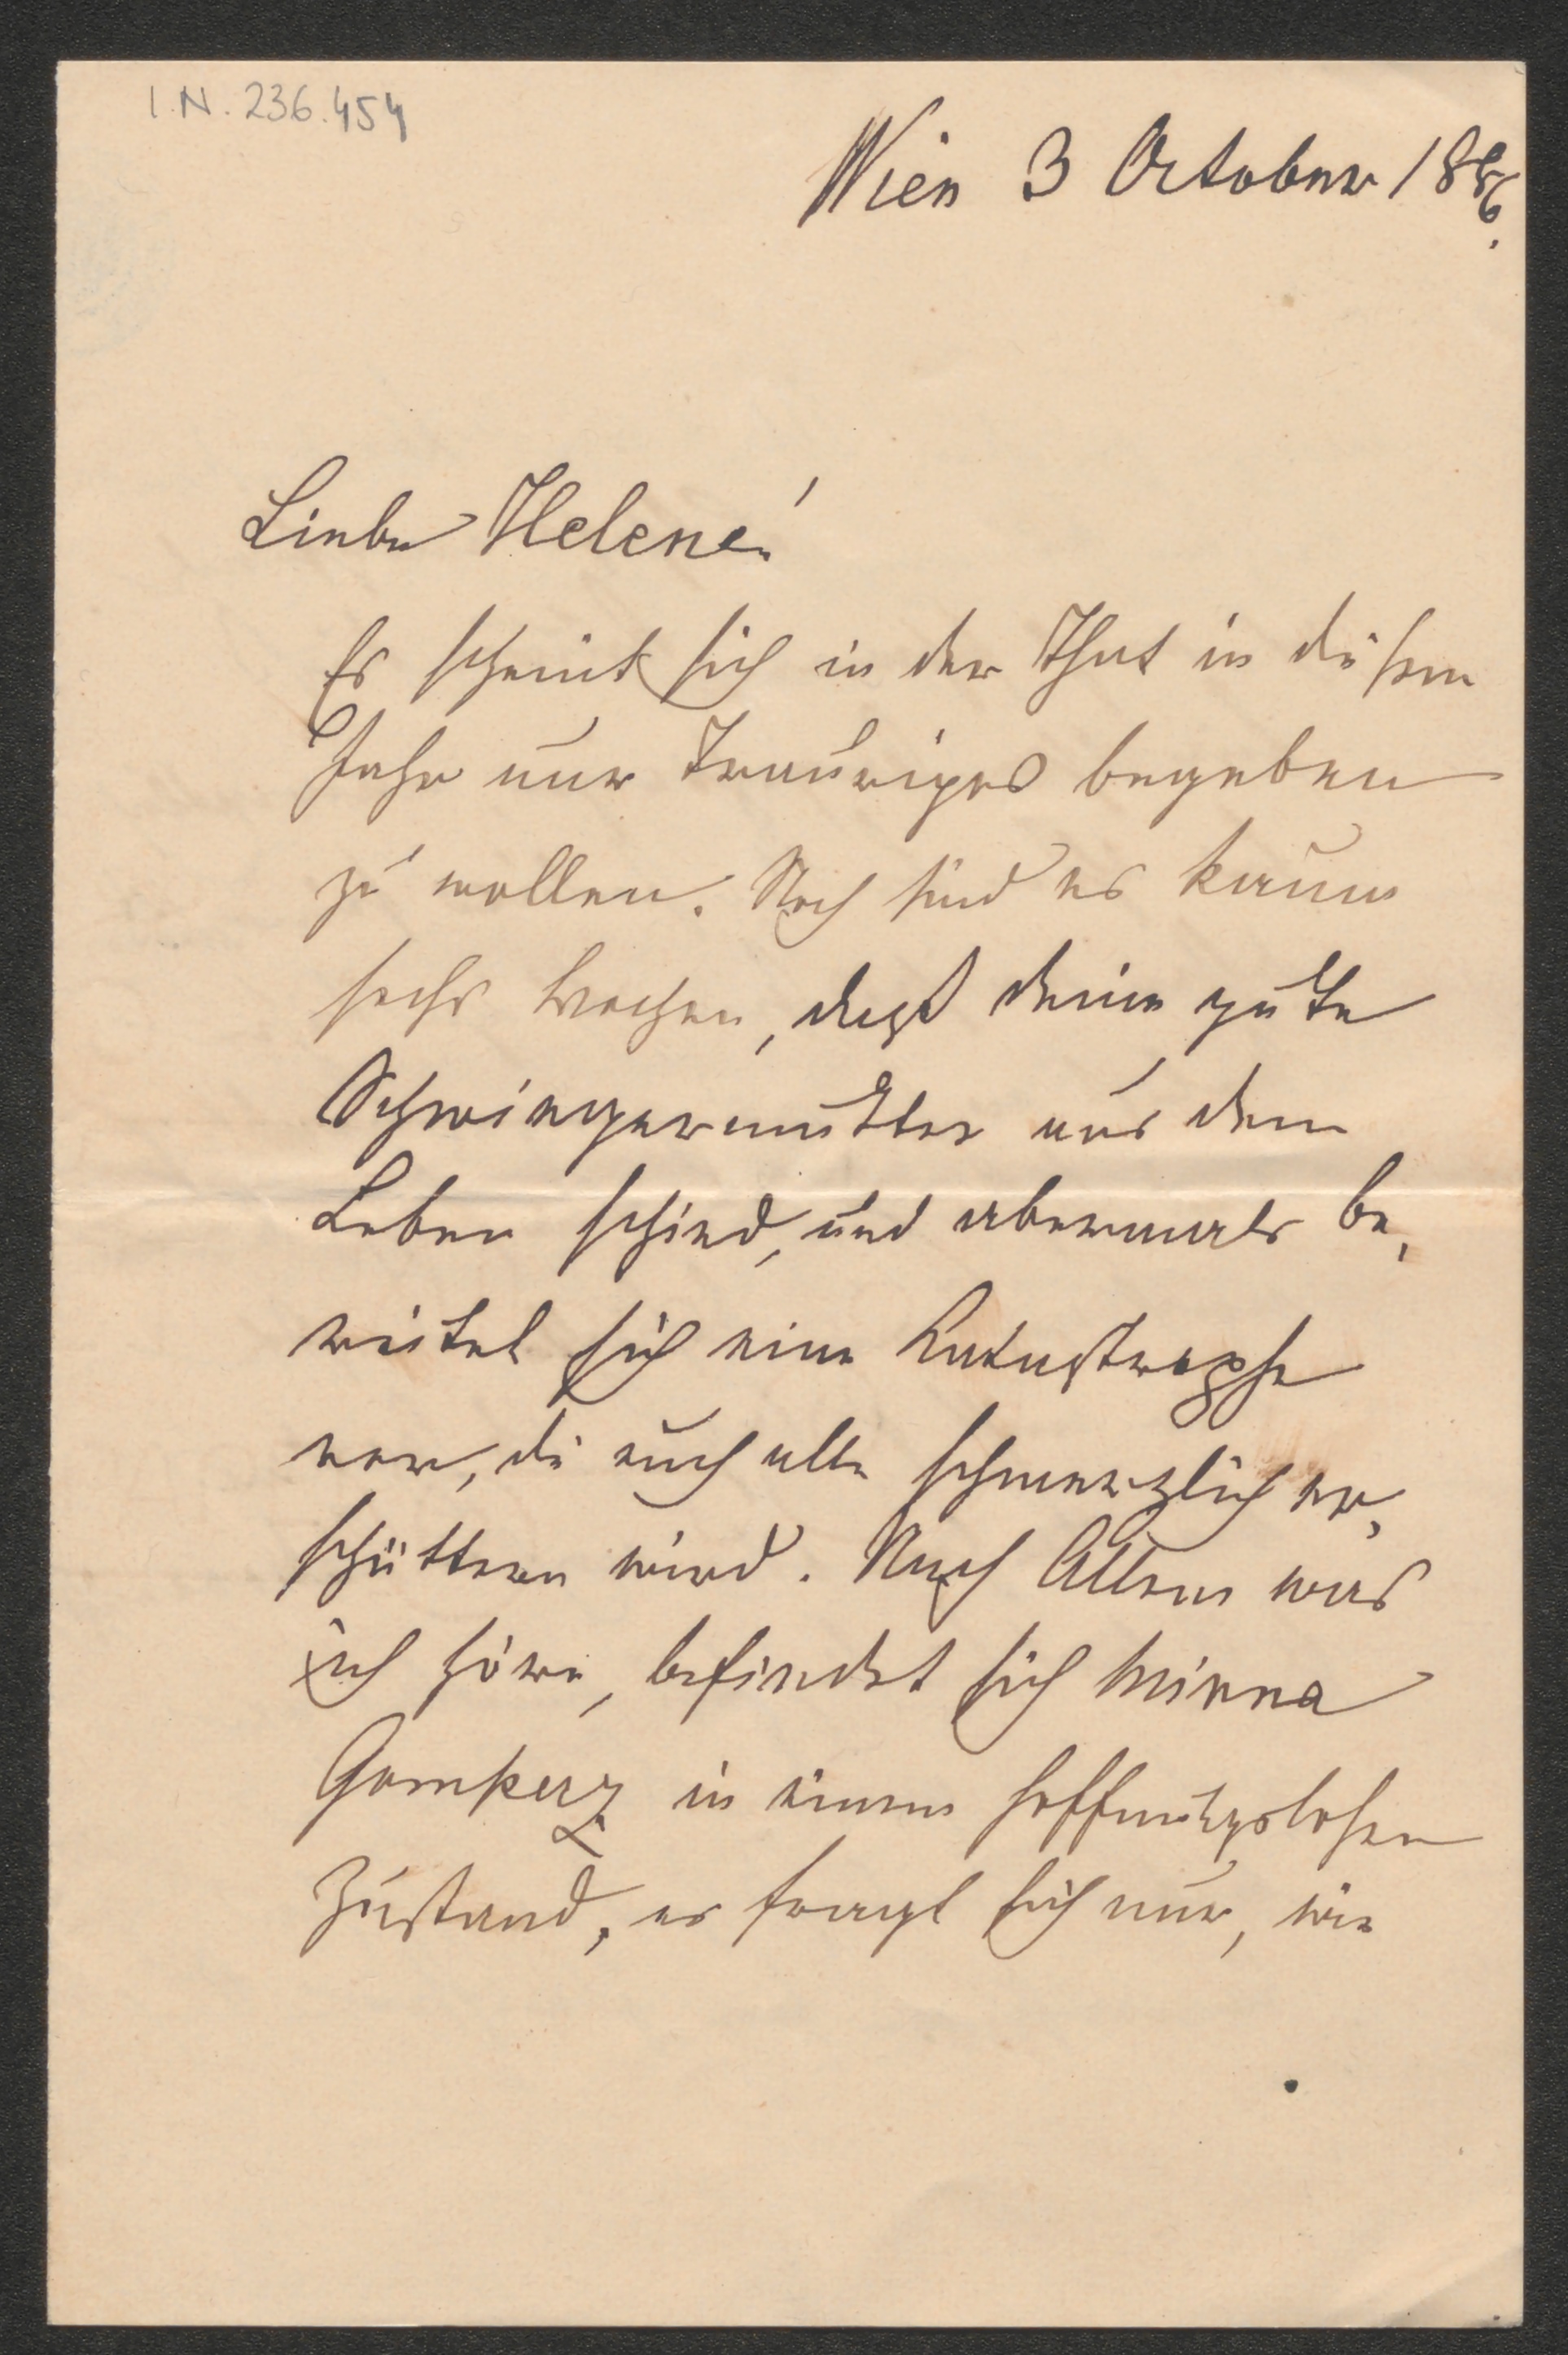 I.N. 236.454
Wien 3 October 1886.
Liebe Helene!
Es scheint sich in der That in diesem
Jahr nur Trauriges begeben
zu wollen. Noch sind es kaum
sechs Wochen, daß deine gute
Schwiegermutter aus dem
Leben schied, und abermals be-
reitet sich eine Katastrophe
vor, die euch alle schmerzlich er-
schüttern wird. Nach Allem was
ich höre, befindet sich Minna
Gomperz in einem hoffnungslosen
Zustand, es fragt sich nur, wie